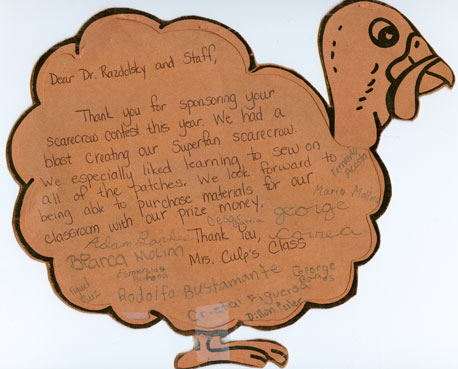 Dear Dr. Razdolsky and Staff,
Thank you for sponsoring your
scarecrow contest this year. We had a
blast creating our Superfan scarecrow!
We especially liked learning to sew on
all of the patches. We look forward to
being able to purchase materials for our
classroom with our prize money.
Mario
george
Adam
Thank You,
Bianca Molina
Mrs. Culp's Class
Rodolfo Bustamante
George
Cristal Figueroa
Dillon